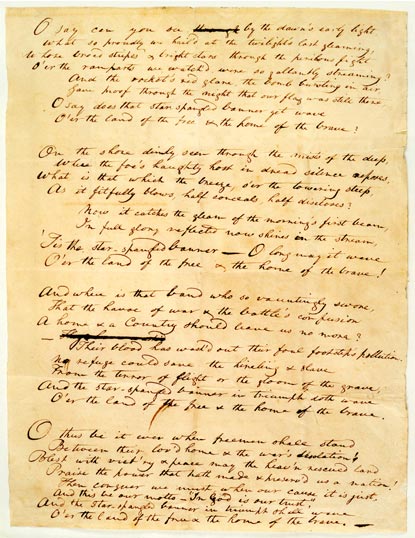 O say can you see through by the dawn's early light
What so proudly we hail'd at the twilight's last gleaming,
Whose broad stripes & bright stars through the perilous fight
O'er the ramparts we watch'd, were so gallantly streaming?
And the rocket's red glare, the bomb bursting in air,
Gave proof through the night that our flag was still there
O say does that star-spangled banner yet wave
O'er the land of the free & the home of the brave?
On the shore dimly seen through the mists of the deep,
Where the foe's haughty host in dread silence reposes,
What is that which the breeze, o'er the towering steep,
As it fitfully blows, half conceals half discloses?
Now it catches the gleam of the morning's first beam,
In full glory reflected now shines in the stream,
'Tis the star-spangled banner — O long may it wave
O'er the land of the free & the home of the brave!
And where is that band who so vauntingly swore,
That the havoc of war & the battle's confusion
A home & a Country should leave us no more?
— Their blood has wash'd out their foul footstep's pollution.
No refuge could save the hireling & slave
From the terror of flight or the gloom of the grave,
And the star-spangled banner in triumph doth wave
O'er the land of the free & the home of the brave.
O thus be it ever when freemen shall stand
Between their lov'd home & the war's desolation!
Blest with vict'ry & peace may the heav'n rescued land
Praise the power that hath made & preserv'd us a nation!
Then conquer we must, when our cause it is just,
And this be our motto — In God is our trust,
And the star-spangled banner in triumph shall wave
O'er the land of the free & the home of the brave. —